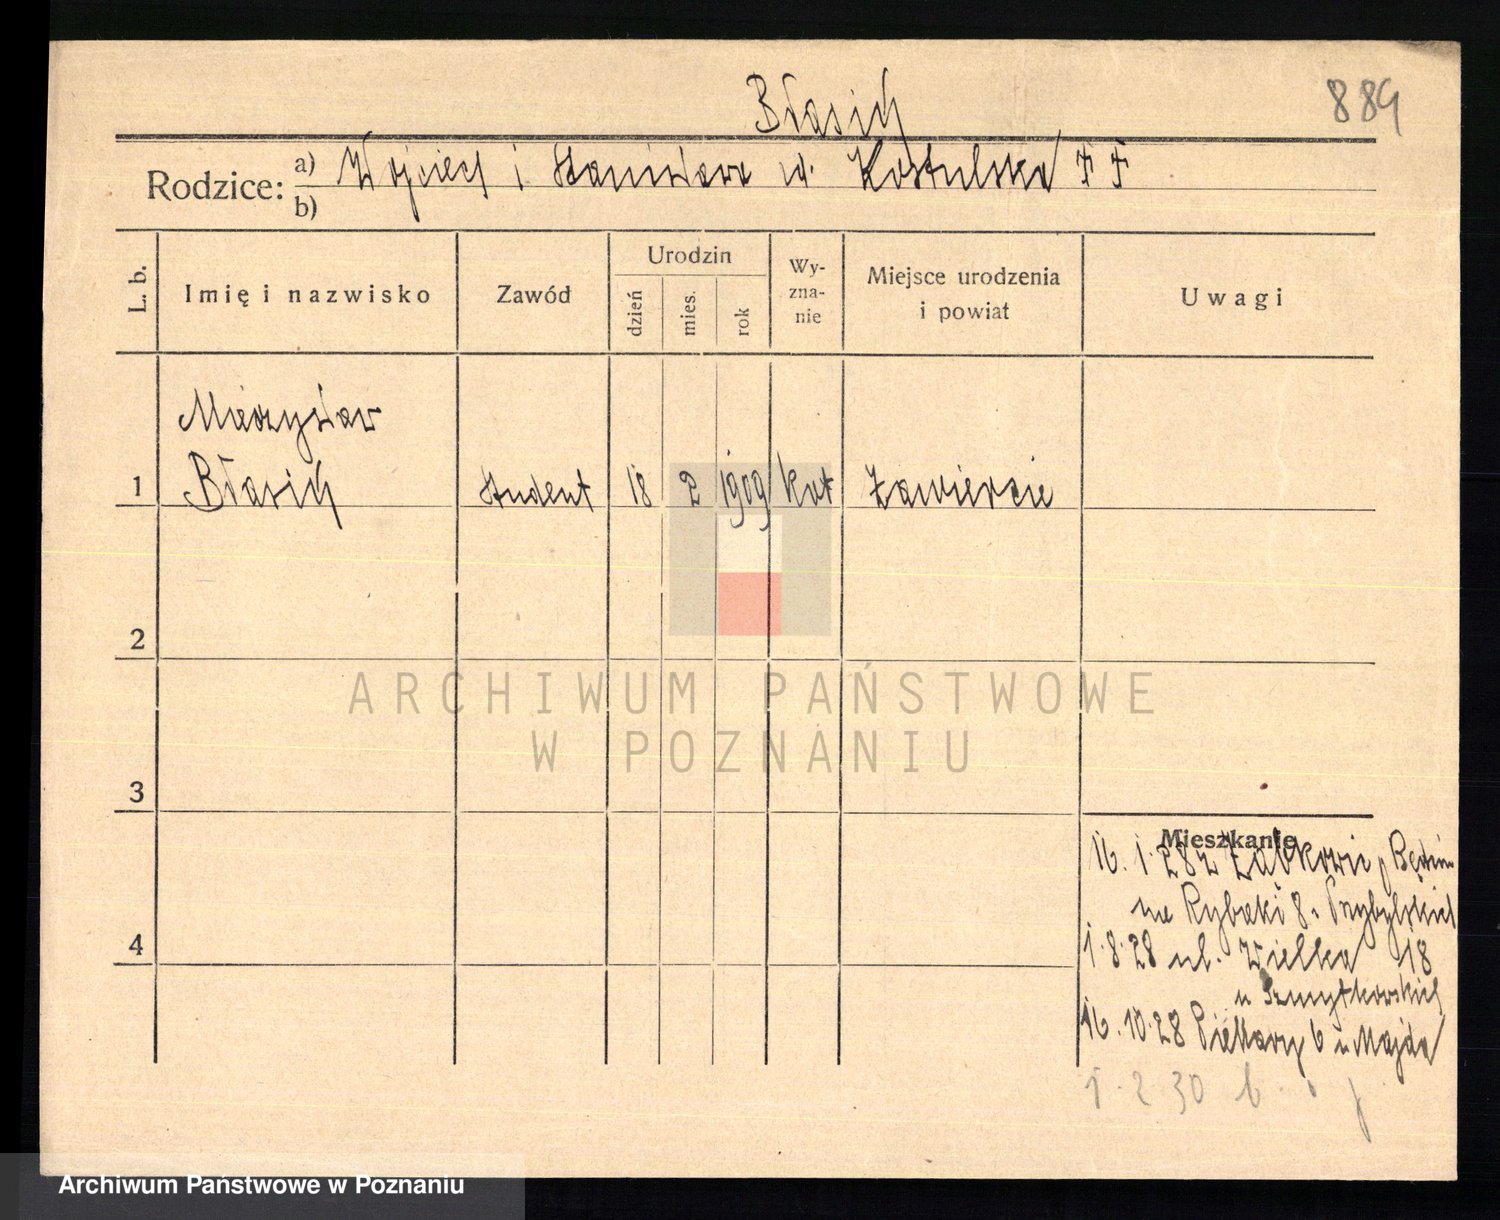 Błasich
889
Rodzice: a) Wojciech i Stanisława ur. Kostulska ††
b)
L. b.
Imię i nazwisko
Zawód
Urodzin
dzień
mies.
rok
Wy-
zna-
nie
Miejsce urodzenia
i powiat
Uwagi
Mieczysław
1 Błasich student 18 2 1909 kat Zawiercie
2
ARCHIWUM PAŃSTWOWE
W POZNANIU
3
Mieszkanie
16. 1. 28 z Ząbkowic p Będzin
na Rybaki 8 u Przybylskich
1.8.28 ul. Wielka 18
4
u Szmytkowskich
16.10.28 Piekary 6 u Majda
1.2.30
Archiwum Państwowe w Poznaniu